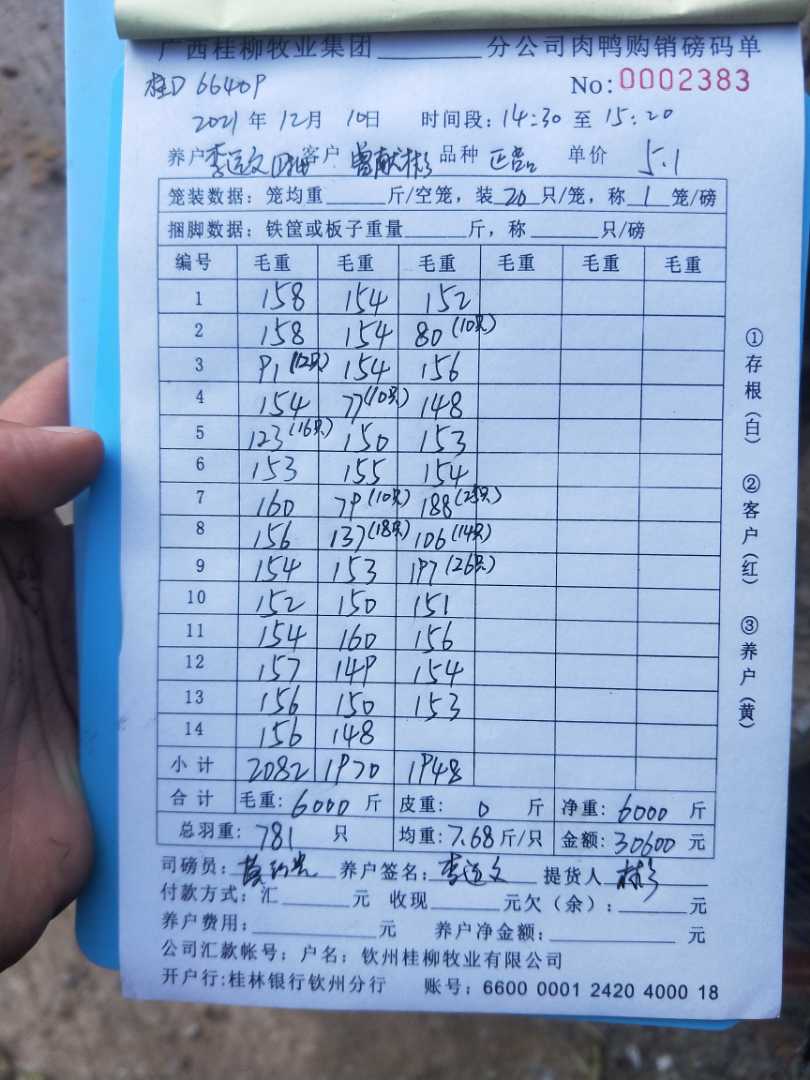 广西桂柳牧业集团________分公司肉鸭购销磅码单
桂D 66409 No:0002383
2021年12月10日 时间段:14:30至15:20
养户 李运文 客户 曾献彬 品种 正品 单价 5.1
笼装数据:笼均重______斤/空笼,装20只/笼,称1笼/磅
捆脚数据:铁筐或板子重量______斤,称______只/磅
编号 毛重 毛重 毛重 毛重 毛重 毛重
1 158 154 152
2 158 154 80(10只)
3 91(12只) 154 156
4 154 77(10只) 148
5 123(16只) 150 153
6 153 155 154
7 160 79(10只) 188(25只)
8 156 137(18只) 106(14只)
9 154 153 197(26只)
10 152 150 151
11 154 160 156
12 157 149 154
13 156 150 153
14 156 148
小计 2082 1970 1948
合计 毛重:6000斤 皮重:0斤 净重:6000斤
总羽重:781只 均重:7.68斤/只 金额:30600元
司磅员: 养户签名:李运文 提货人 彬
付款方式:汇______元 收现______元欠(余):______元
养户费用:________元 养户净金额:________元
公司汇款帐号:户名:钦州桂柳牧业有限公司
开户行:桂林银行钦州分行 账号:6600 0001 2420 4000 18
①存根(白) ②客户(红) ③养户(黄)